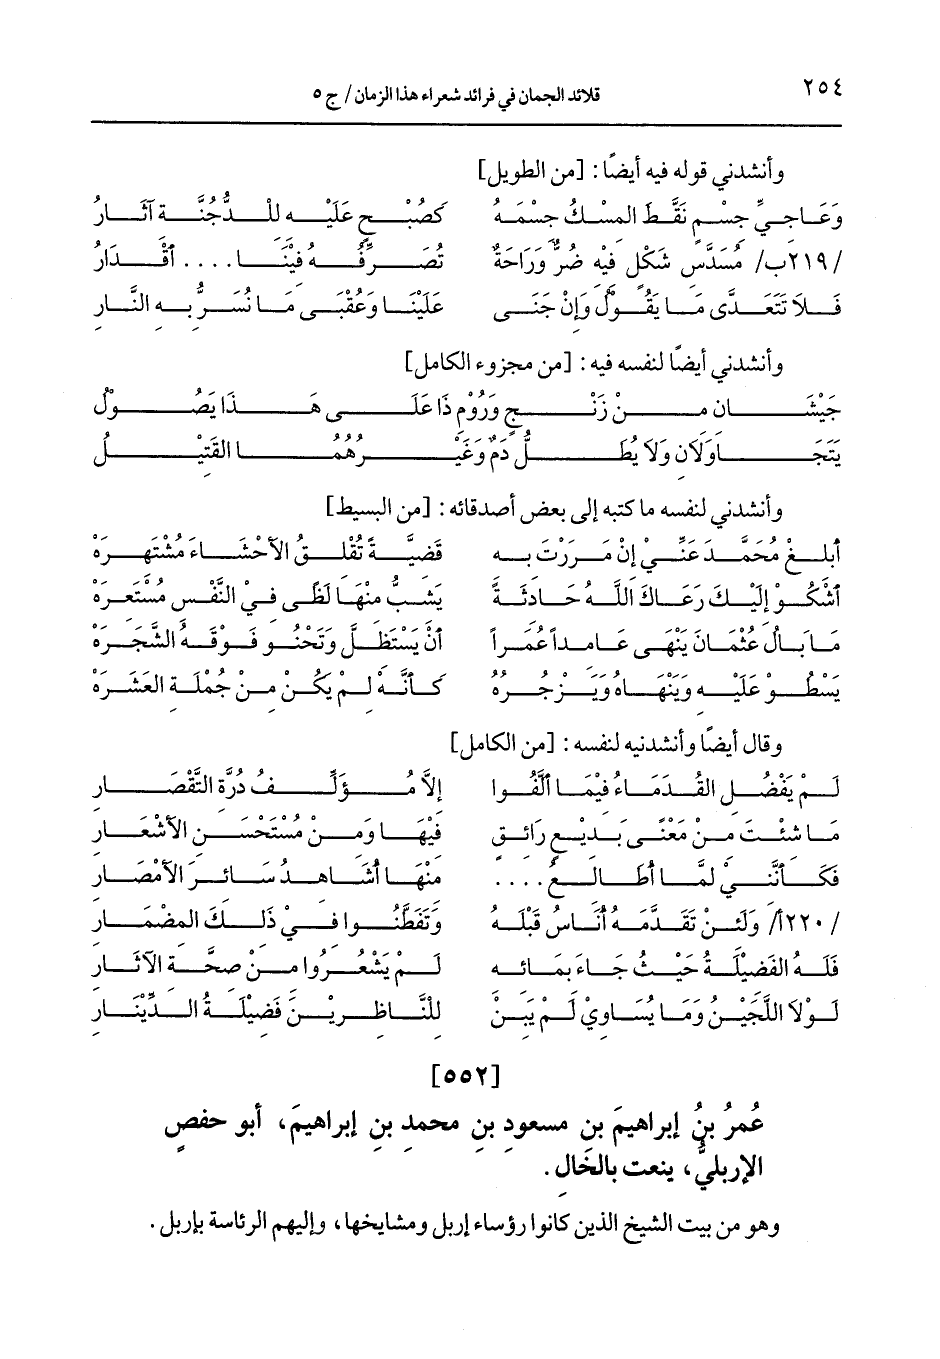 ٢٥٤ قلائد الجمان في فرائد شعراء هذا الزمان / ج ٥
وأنشدني قوله فيه أيضًا: [من الطويل]
وَعَاجِيِّ جِسْمٍ نَقَّطَ المِسْكُ جِسْمَهُ كَصُبْحٍ عَلَيْهِ لِلدُّجُنَّةِ آثَارُ
/٢١٩ب/ مُسَدَّسِ شَكْلٍ فِيْهِ ضُرٌّ وَرَاحَةٌ تُصَرِّفُهُ فِيْنَا .... أقْدَارُ
فَلاَ تَتَعَدَّى مَا يَقُوْلُ وَإِنْ جَنَى عَلَيْنَا وَعُقْبَى مَا نُسَرُّ بِهِ النَّارُ
وأنشدني أيضًا لنفسه فيه: [من مجزوء الكامل]
جَيْشَانِ مِنْ زَنْجٍ وَرُوْمٍ ذَا عَلَى هَذَا يَصُوْلُ
يَتَجَاوَلاَنِ وَلاَ يُطَلُّ دَمٌ وَغَيْرُهُمَا القَتِيْلُ
وأنشدني لنفسه ما كتبه إلى بعض أصدقائه: [من البسيط]
أبلِغْ مُحَمَّدَ عَنِّيْ إِنْ مَرَرْتَ بِهِ قَضِيَّةً تُقْلِقُ الأَحْشَاءَ مُشْتَهِرَهْ
أشْكُو إِلَيْكَ رَعَاكَ اللَّهُ حَادِثَةً يَشِبُّ مِنْهَا لَظًى فِيْ النَّفْسِ مُسْتَعِرَهْ
مَا بَالُ عُثْمَانَ يَنْهَى عَامِداً عُمَراً أنْ يَسْتَظِلَّ وَتَحْنُو فَوْقَهُ الشَّجَرَهْ
يَسْطُو عَلَيْهِ وَيَنْهَاهُ وَيَزْجُرُهُ كَأنَّهُ لَمْ يَكُنْ مِنْ جُمْلَةِ العَشَرَهْ
وقال أيضًا وأنشدنيه لنفسه: [من الكامل]
لَمْ يَفْضُلِ القُدَمَاءُ فِيْمَا ألَّفُوا إِلاَّ مُؤَلِّفُ دُرَّةِ التَّقْصَارِ
مَا شئْتَ مِنْ مَعْنًى بَدِيْعٍ رَائِقٍ فِيْهَا وَمِنْ مُسْتَحْسَنِ الأَشْعَارِ
فَكَأنَّنِيْ لَمَّا أُطَالِعُ .... مِنْهَا أُشَاهِدُ سَائِرَ الأَمْصَارِ
/٢٢٠أ/ وَلَئِنْ تَقَدَّمَهُ أُنَاسٌ قَبْلَهُ وَتَفَطَّنُوا فِيْ ذَلِكَ المِضْمَارِ
فَلَهُ الفَضِيْلَةُ حَيْثُ جَاءَ بِمَا بِهِ لَمْ يَشْعُرُوا مِنْ صِحَّةِ الآثَارِ
لَوْلاَ اللُّجَيْنُ وَمَا يُسَاوِي لَمْ يَبِنْ لِلنَّاظِرِيْنَ فَضِيْلَةُ الدِّيْنَارِ
[٥٥٢]
عُمَرُ بنُ إبراهيمَ بنِ مسعودِ بنِ محمدِ بنِ إبراهيمَ، أبو حفصٍ
الإربليُّ، ينعت بالخَالِ.
وهو من بيت الشيخ الذين كانوا رؤساء إربل ومشايخها، وإليهم الرئاسة بإربل.